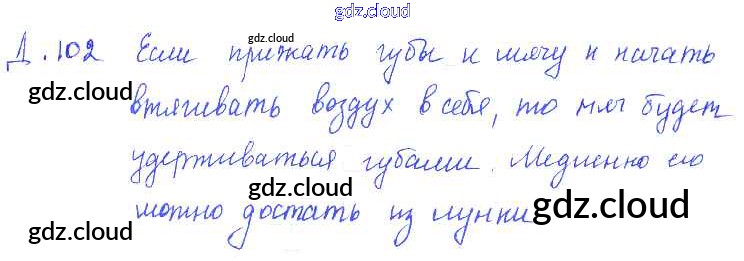 gdz.cloud
Д.102 Если прижать губы к мячу и начать
gdz.cloud
gdz.cloud
втягивать воздух в себя, то мяч будет
удерживаться губами. Медленно его
gdz.cloud
gdz.cloud
gdz.cloud
можно достать из лунки